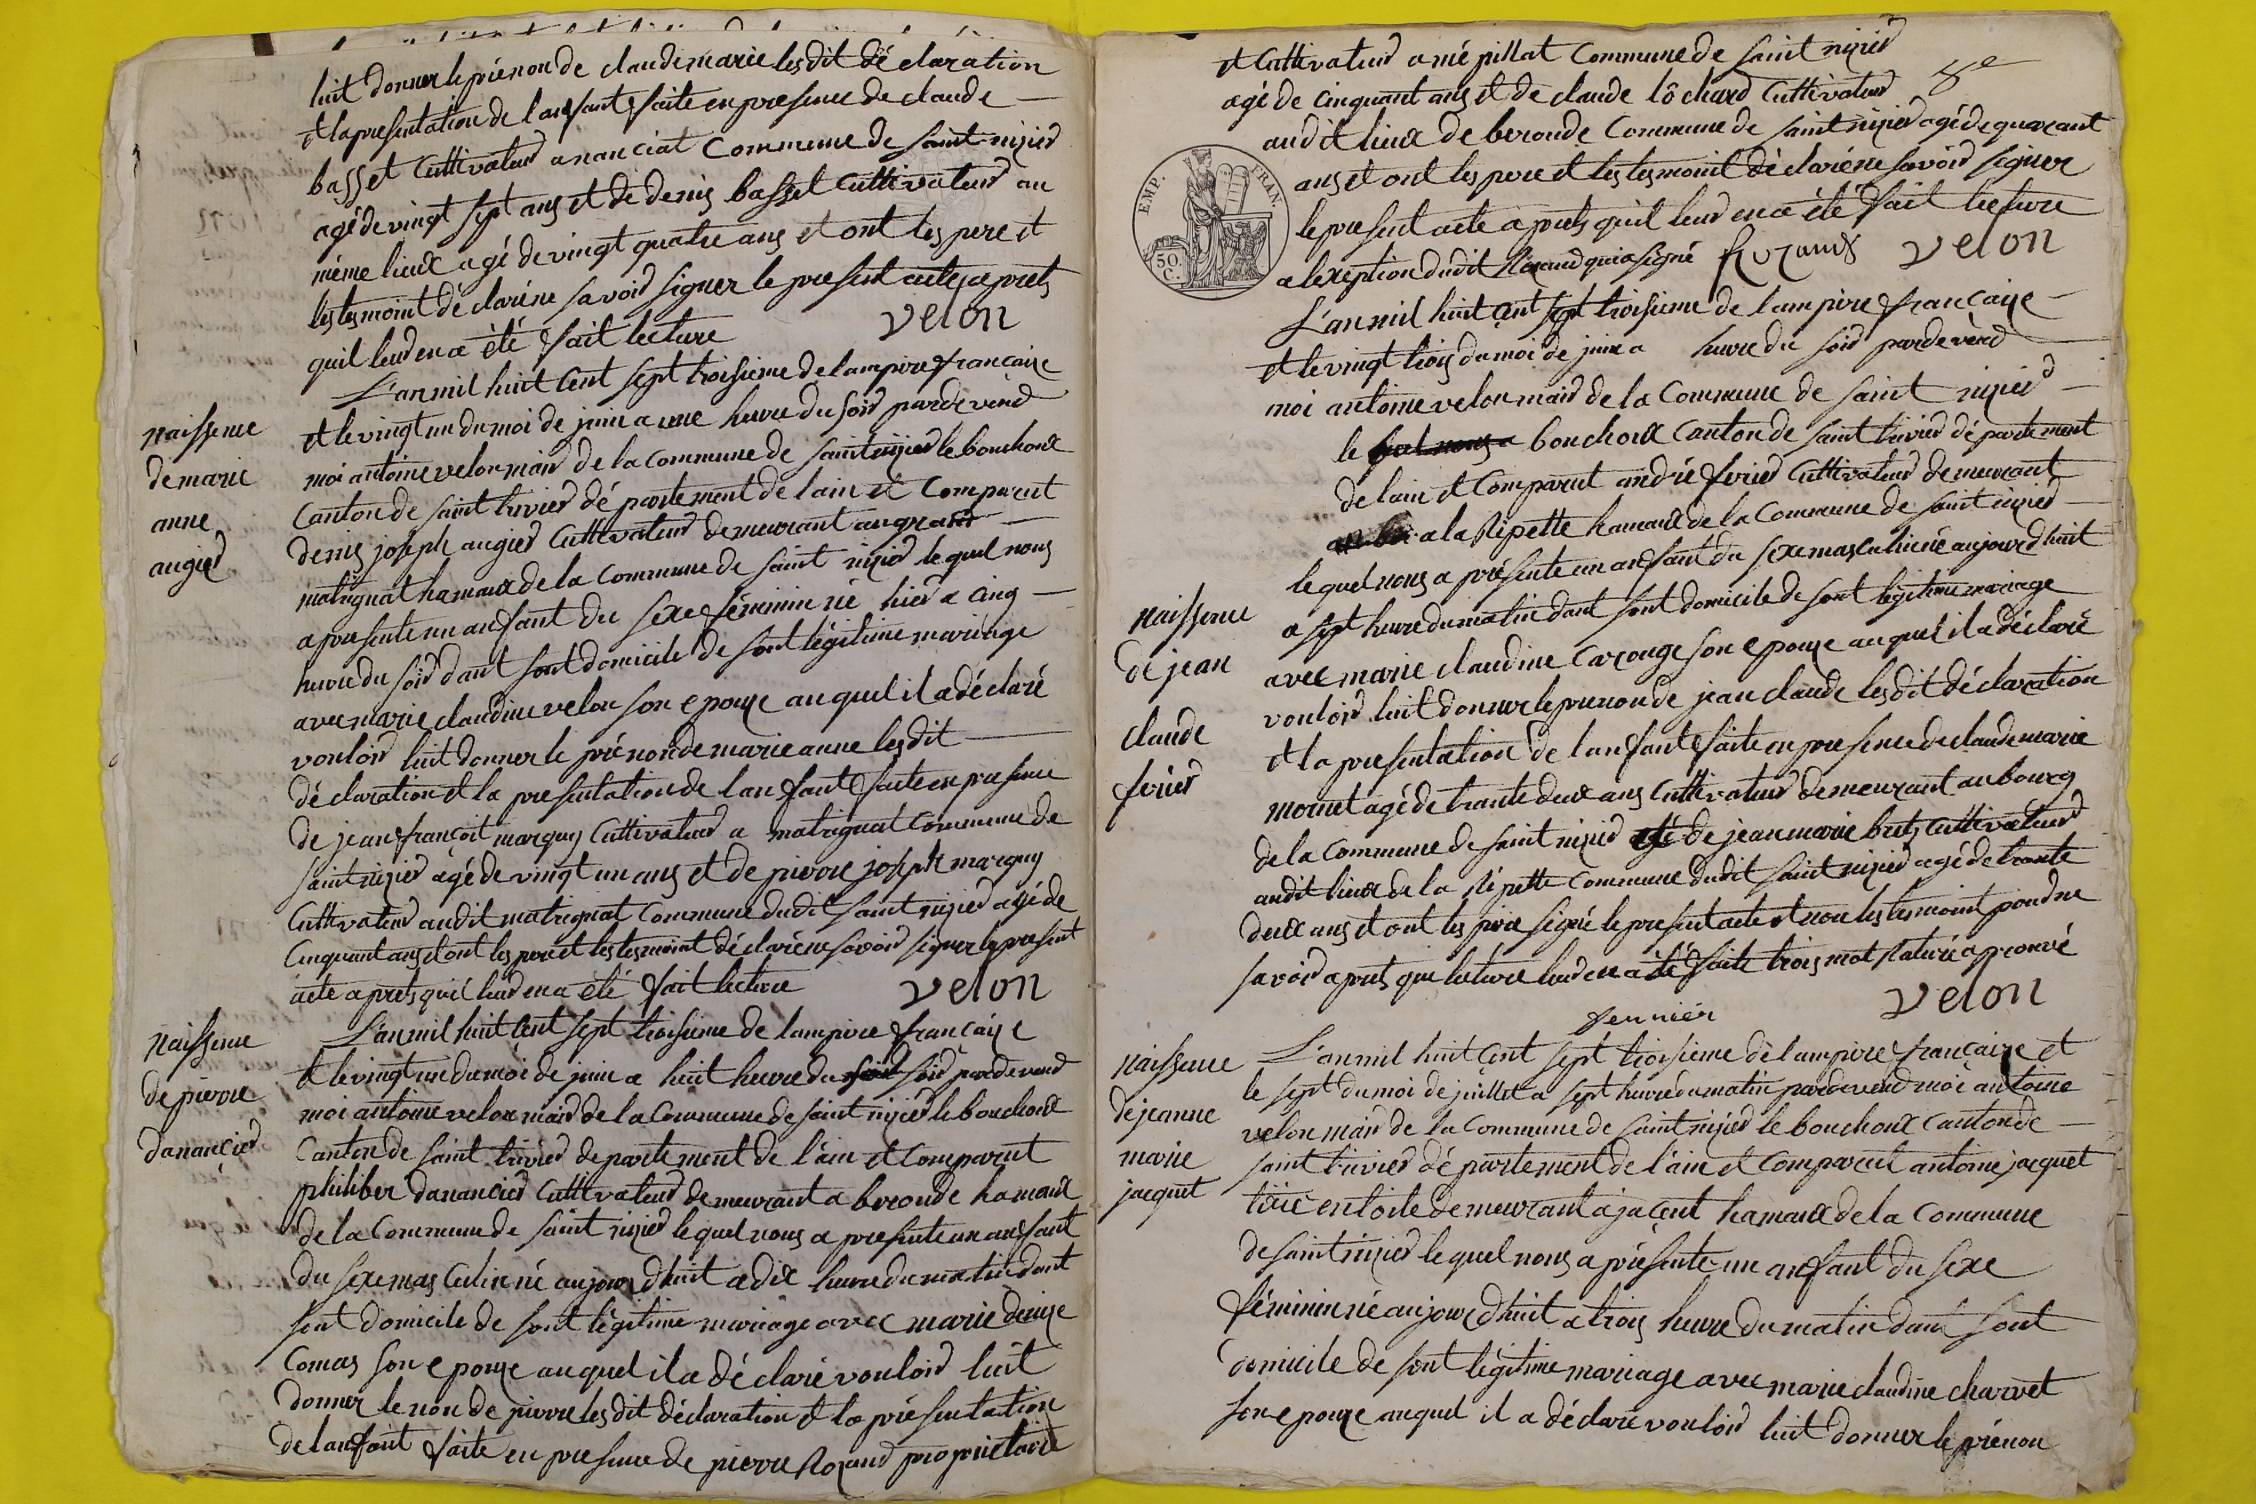 luit donner le prénon de claude marie les dit déclaration
et la presentation de l'anfant faite en presence de claude
basset Cultivateur a nanciat Commune de saint nizier
agé de vingt sept ans et de denis basset Cultivateur au
même lieux agé de vingt quatre ans et ont les pere et
les tesmoint déclaré ne savoir signer le present acte aprets
quil leur en a été fait lecture velon
Naissence
de marie
anne
augier
L'an mil huit Cent sept troisieme de lampire francaize
et le vingt un du moi de juin a une heure du soir pardevend
moi antoine velon mair de la commune de saint nizier le bouchoux
Canton de saint trivier département de lain et Comparut
denis joseph augier Cultivateur demeurant au grand
matrignat hamaux de la Commune de saint nizier le quel nous
a presente un anfant du sexe féminin né hier a cinq
heure du soir dant sont domicile de sont légitime mariage
avec marie claudine velon son epouze au quel il a déclaré
vouloir luit donner le prénon de marie anne les dit
déclaration et la presentation de lanfant faite en presence
de jean françoit marguy Cultivateur a matrignat Commune de
saint nizier agé de vingt un ans et de pierre joseph marguy
Cultivateur audit matrignat Commune dudit saint nizier agé de
Cinquant ans et ont les pere et les tesmoint déclaré ne savoir signer le present
acte aprets quil leur en a été fait lecture velon
Naissence
de pierre
danancier
L'an mil huit Cent sept troisieme de lampire françaize
et le vingt un du moi de juin a huit heure du soir pardevend
moi antoine velon mair de la Commune de saint nizier le bouchoux
Canton de saint trivier departement de l'ain et Comparut
philiber danancier Cultivateur demeurant a beronde hamaux
de la Commune de saint nizier le quel nous a presente un anfant
du sexe masculin né aujourdhuit a dix heure du matin dant
sont domicile de sont légitime mariage avec marie denize
Comas son epouze au quel il a déclaré vouloir luit
donner le non de pierre les dit déclaration et la présentation
de lanfant faite en presence de pierre Rozand propriétaire
8e
et Cultivateur a mépillat Commune de saint nizier
agé de cinquant ans et de claude lôchard Cultivateur
audit lieux de beronde Commune de saint nizier agé de quarant
ans et ont les pere et les tesmoint déclaré ne savoir signer
le present acte aprets quil leur en a été fait lecture
a lexeption dudit Rozand qui a signé Rozand velon
EMP. FRAN.
50. C.
L'an mil huit Cent sept troisieme de lampire françaize
et le vingt trois du moi de juin a heure du soir pardevend
moi antoine velon mair de la Commune de saint nizier
le bouchoux Canton de saint trivier département
de lain et Comparut andré ferier Cultivateur demeurant
a la Ripette hamaux de la Commune de saint nizier
le quel nous a présente un anfant du sexe masculin né aujourdhuit
a sept heure du matin dant sont domicile de sont légitime mariage
avec marie claudine Carronge son epouze au quel il a déclaré
vouloir luit donner le prenon de jean claude les dit déclaration
et la presentation de lanfant faite en presence de claude marie
moiret agé de trante deux ans Cultivateur demeurant au bourg
de la Commune de saint nizier et de jean marie brets Cultivateur
audit lieux de la Ripette Commune dudit saint nizier agé de trante
deux ans et ont les pere signé le present acte et non les tesmoint pour ne
savoir aprets que lecture leur en a été faite trois mot raturé aprouvé
Naissence
de jean
claude
ferier
fennier velon
Naissence
de jeanne
marie
jacquet
L'an mil huit Cent sept troisieme de lampire françaize et
le sept du moi de juillet a sept heure du matin pardevend moi antoine
velon mair de la Commune de saint nizier le bouchoux Canton de
saint trivier département de l'ain et Comparut antoine jacquet
en toile demeurant a jacent hamaux de la Commune
de saint nizier le quel nous a présente un anfant du sexe
féminin né aujourdhuit a trois heure du matin dant sont
domicile de sont légitime mariage avec marie claudine charvet
son epouze auquel il a déclaré vouloir luit donner le prénon